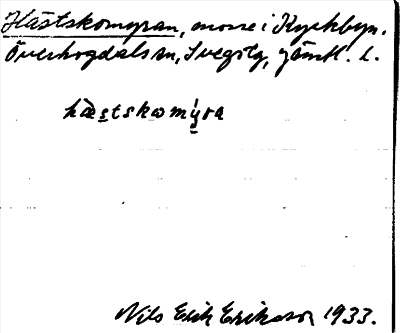 Hästskomyran, mosse i Kyrkbyn.
Överhogdals sn, Svegs tg, Jämtl. l.
hæ̀stskomýra
Nils Erik Eriksson 1933.